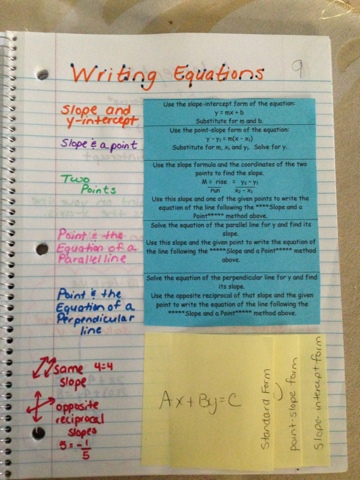 Writing Equations
9
Slope and
y-intercept
Use the slope-intercept form of the equation:
y = mx + b
Substitute for m and b.
Slope & a point
Use the point-slope form of the equation:
y - y₁ = m(x - x₁)
Substitute for m, x₁ and y₁. Solve for y.
Two
Points
Use the slope formula and the coordinates of the two
points to find the slope.
M = rise = y₂ - y₁
run x₂ - x₁
Use this slope and one of the given points to write the
equation of the line following the ****Slope and a
Point***** method above.
Point & the
Equation of a
Parallel line
Solve the equation of the parallel line for y and find its
slope.
Use this slope and the given point to write the equation of
the line following the *****Slope and a Point***** method
above.
Point & the
Equation of a
Perpendicular
line
Solve the equation of the perpendicular line for y and find
its slope.
Use the opposite reciprocal of that slope and the given
point to write the equation of the line following the
*****Slope and a Point***** method above.
same 4=4
slope
opposite
reciprocal
slopes
5 = -1/5
Ax + By = C
Standard Form
point-slope form
Slope-intercept form